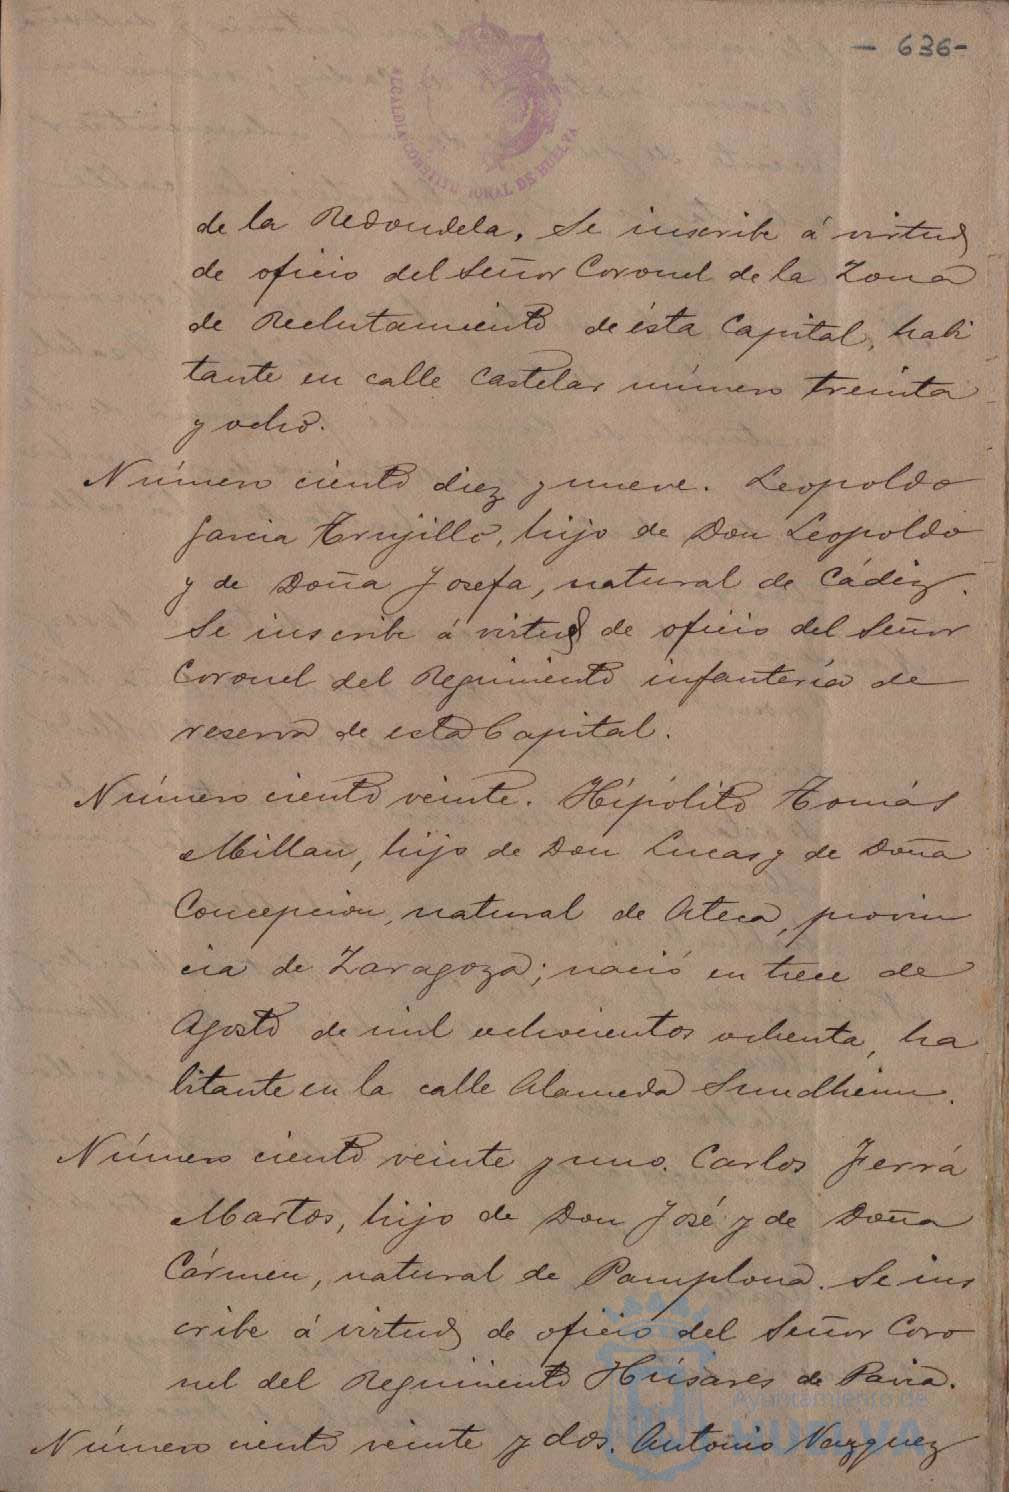 - 636-
ALCALDIA CONSTITUCIONAL DE HUELVA
de la Redondela. Se inscribe á virtud
de oficio del Señor Coronel de la Zona
de Reclutamiento de ésta Capital, habi
tante en calle Castelar número treinta
y ocho.
Número ciento diez y nueve. Leopoldo
Garcia Trujillo, hijo de Don Leopoldo
y de Doña Josefa, natural de Cádiz.
Se inscribe á virtud de oficio del Señor
Coronel del Regimiento infantería de
reserva de esta Capital.
Número ciento veinte. Hipólito Tomás
Millan, hijo de Don Lucas y de Doña
Concepcion, natural de Ateca, provin
cia de Zaragoza; nació en trece de
Agosto de mil ochocientos ochenta, ha
bitante en la calle Alameda Sundheim.
Número ciento veinte y uno. Carlos Ferrá
Martos, hijo de Don José y de Doña
Cármen, natural de Pamplona. Se ins
cribe á virtud de oficio del Señor Coro
nel del Regimiento Húsares de Pavia.
Ayuntamiento de
HUELVA
Número ciento veinte y dos. Antonio Vazquez